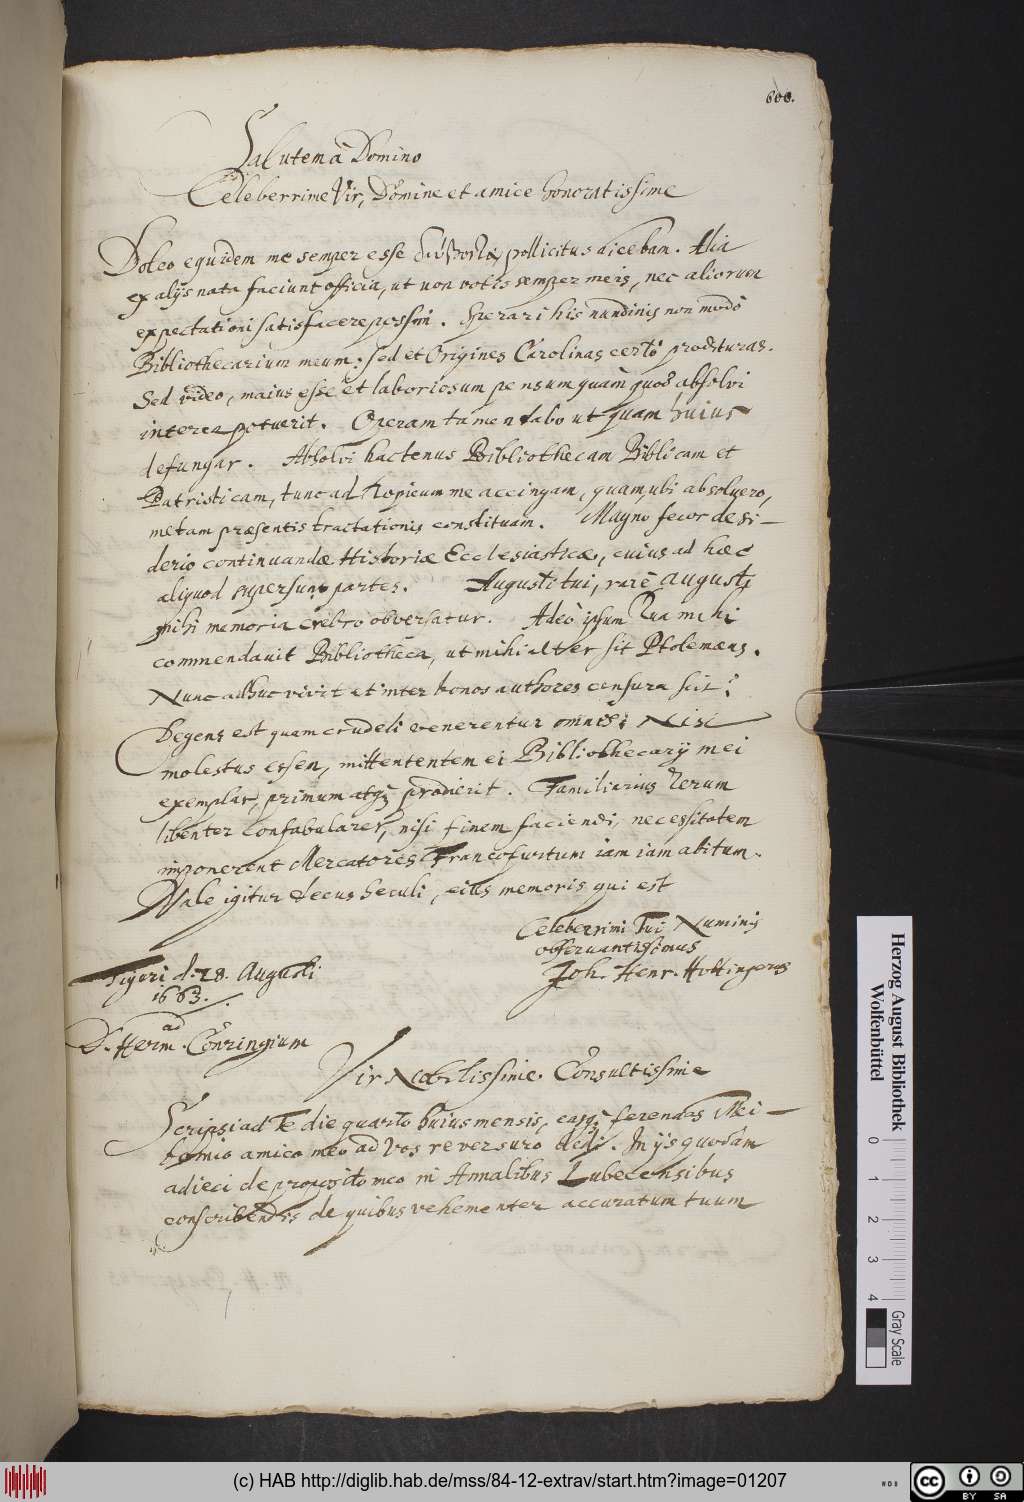 600.
Salutem à Domino
Celeberrime Vir, Domine et amice honoratissime
Doleo equidem me semper esse pollicitus dicebam. Alia
ex alijs nata faciunt officia, ut non votis semper meis, nec aliorum
expectationi satisfacere possim. Sperari his nundinis non modò
Bibliothecarium meum: sed et Origines Carolinas certò prodituras.
Sed video, maius esse et laboriosum pensum quàm quod absolvi
interea potuerit. Operam tamen dabo ut quam huius
defungar. Absolvi hactenus Bibliothecam Biblicam et
Patristicam, tunc ad Topicum me accingam, quam ubi absoluero,
metam præsentis tractationis constituam. Magno feror desi-
derio continuandæ Historiæ Ecclesiasticæ, cuius ad hæc
aliquod supersunt partes. Augusti tui, verè augusti
mihi memoria crebrò obversatur. Adeò ipsum sua mihi
commendauit Bibliotheca, ut mihi alter sit Ptolemæus.
Nunc adhuc vivit et inter bonos authores censura scit?
Degens est quam crudeli venerentur omnes? Nisi
molestus essem, mittentem ei Bibliothecarij mei
exemplar, primum atque prodierit. Familiarius Tecum
libenter confabularer, nisi finem faciendi, necessitatem
imponerent Mercatores Francofurtum iam iam abitum.
Vale igitur decus seculi, eius memoris qui est
Celeberrimi Tui Numinis
observantissimus
Joh. Henr. Hottingerus
Tiguri d. 28. Augusti
1663.
ad
D. Herm. Conringium
Vir Nobilissime. Consultissime
Scripsi ad Te die quarto huius mensis, easque ferendas Mei-
bomio amico meo ad Vos reversuro dedi. In ijs quoddam
adieci de proposito meo in Annalibus Lubecensibus
conscribendis de quibus vehementer accuratum tuum
Herzog August Bibliothek
Wolfenbüttel
0 1 2 3 4
Gray Scale
(c) HAB http://diglib.hab.de/mss/84-12-extrav/start.htm?image=01207
cc BY SA